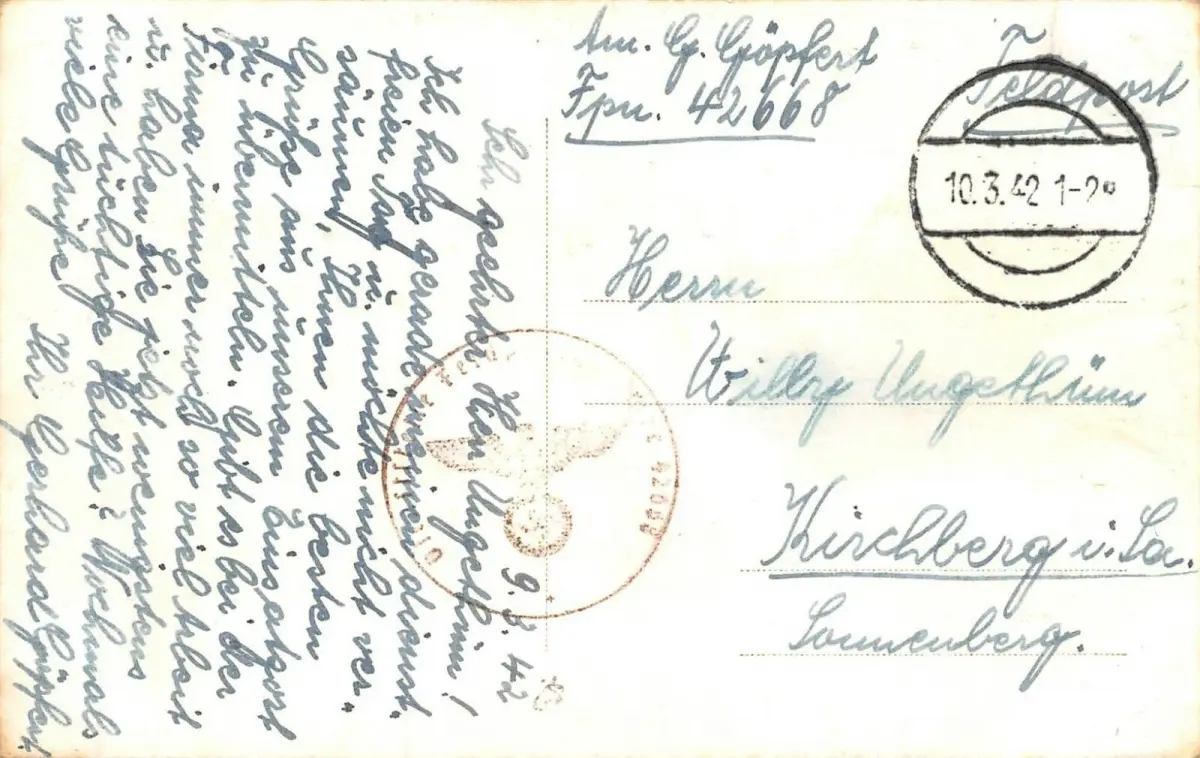 Am. G. Göpfert
Fpn. 42668
Feldpost
10.3.42 1-2
Herrn
Willy Ungethüm
Kirchberg i. Sa.
Sonnenberg.
9.3.42
Sehr geehrter Herr Ungethüm!
Ich habe gerade meinen dienst-
freien Tag u. möchte nicht ver-
säumen, Ihnen die besten
Grüße aus unserem Einsatzort
zu übermitteln. Gibt es bei der
Firma immer noch so viel Arbeit
u. haben Sie jetzt wenigstens
eine tüchtige Hilfe? Nochmals
viele Grüße
Ihr Gerhard Göpfert